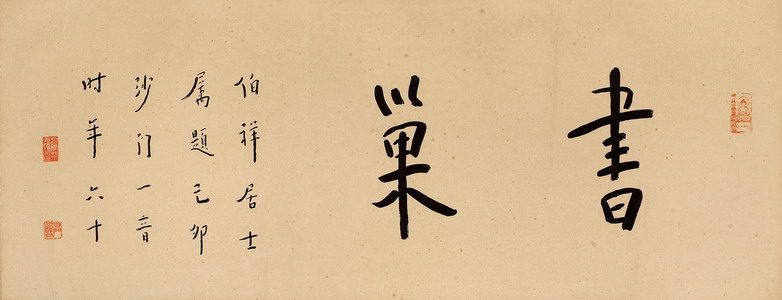 書巢
伯祥居士
属題己卯
沙門一音
时年六十